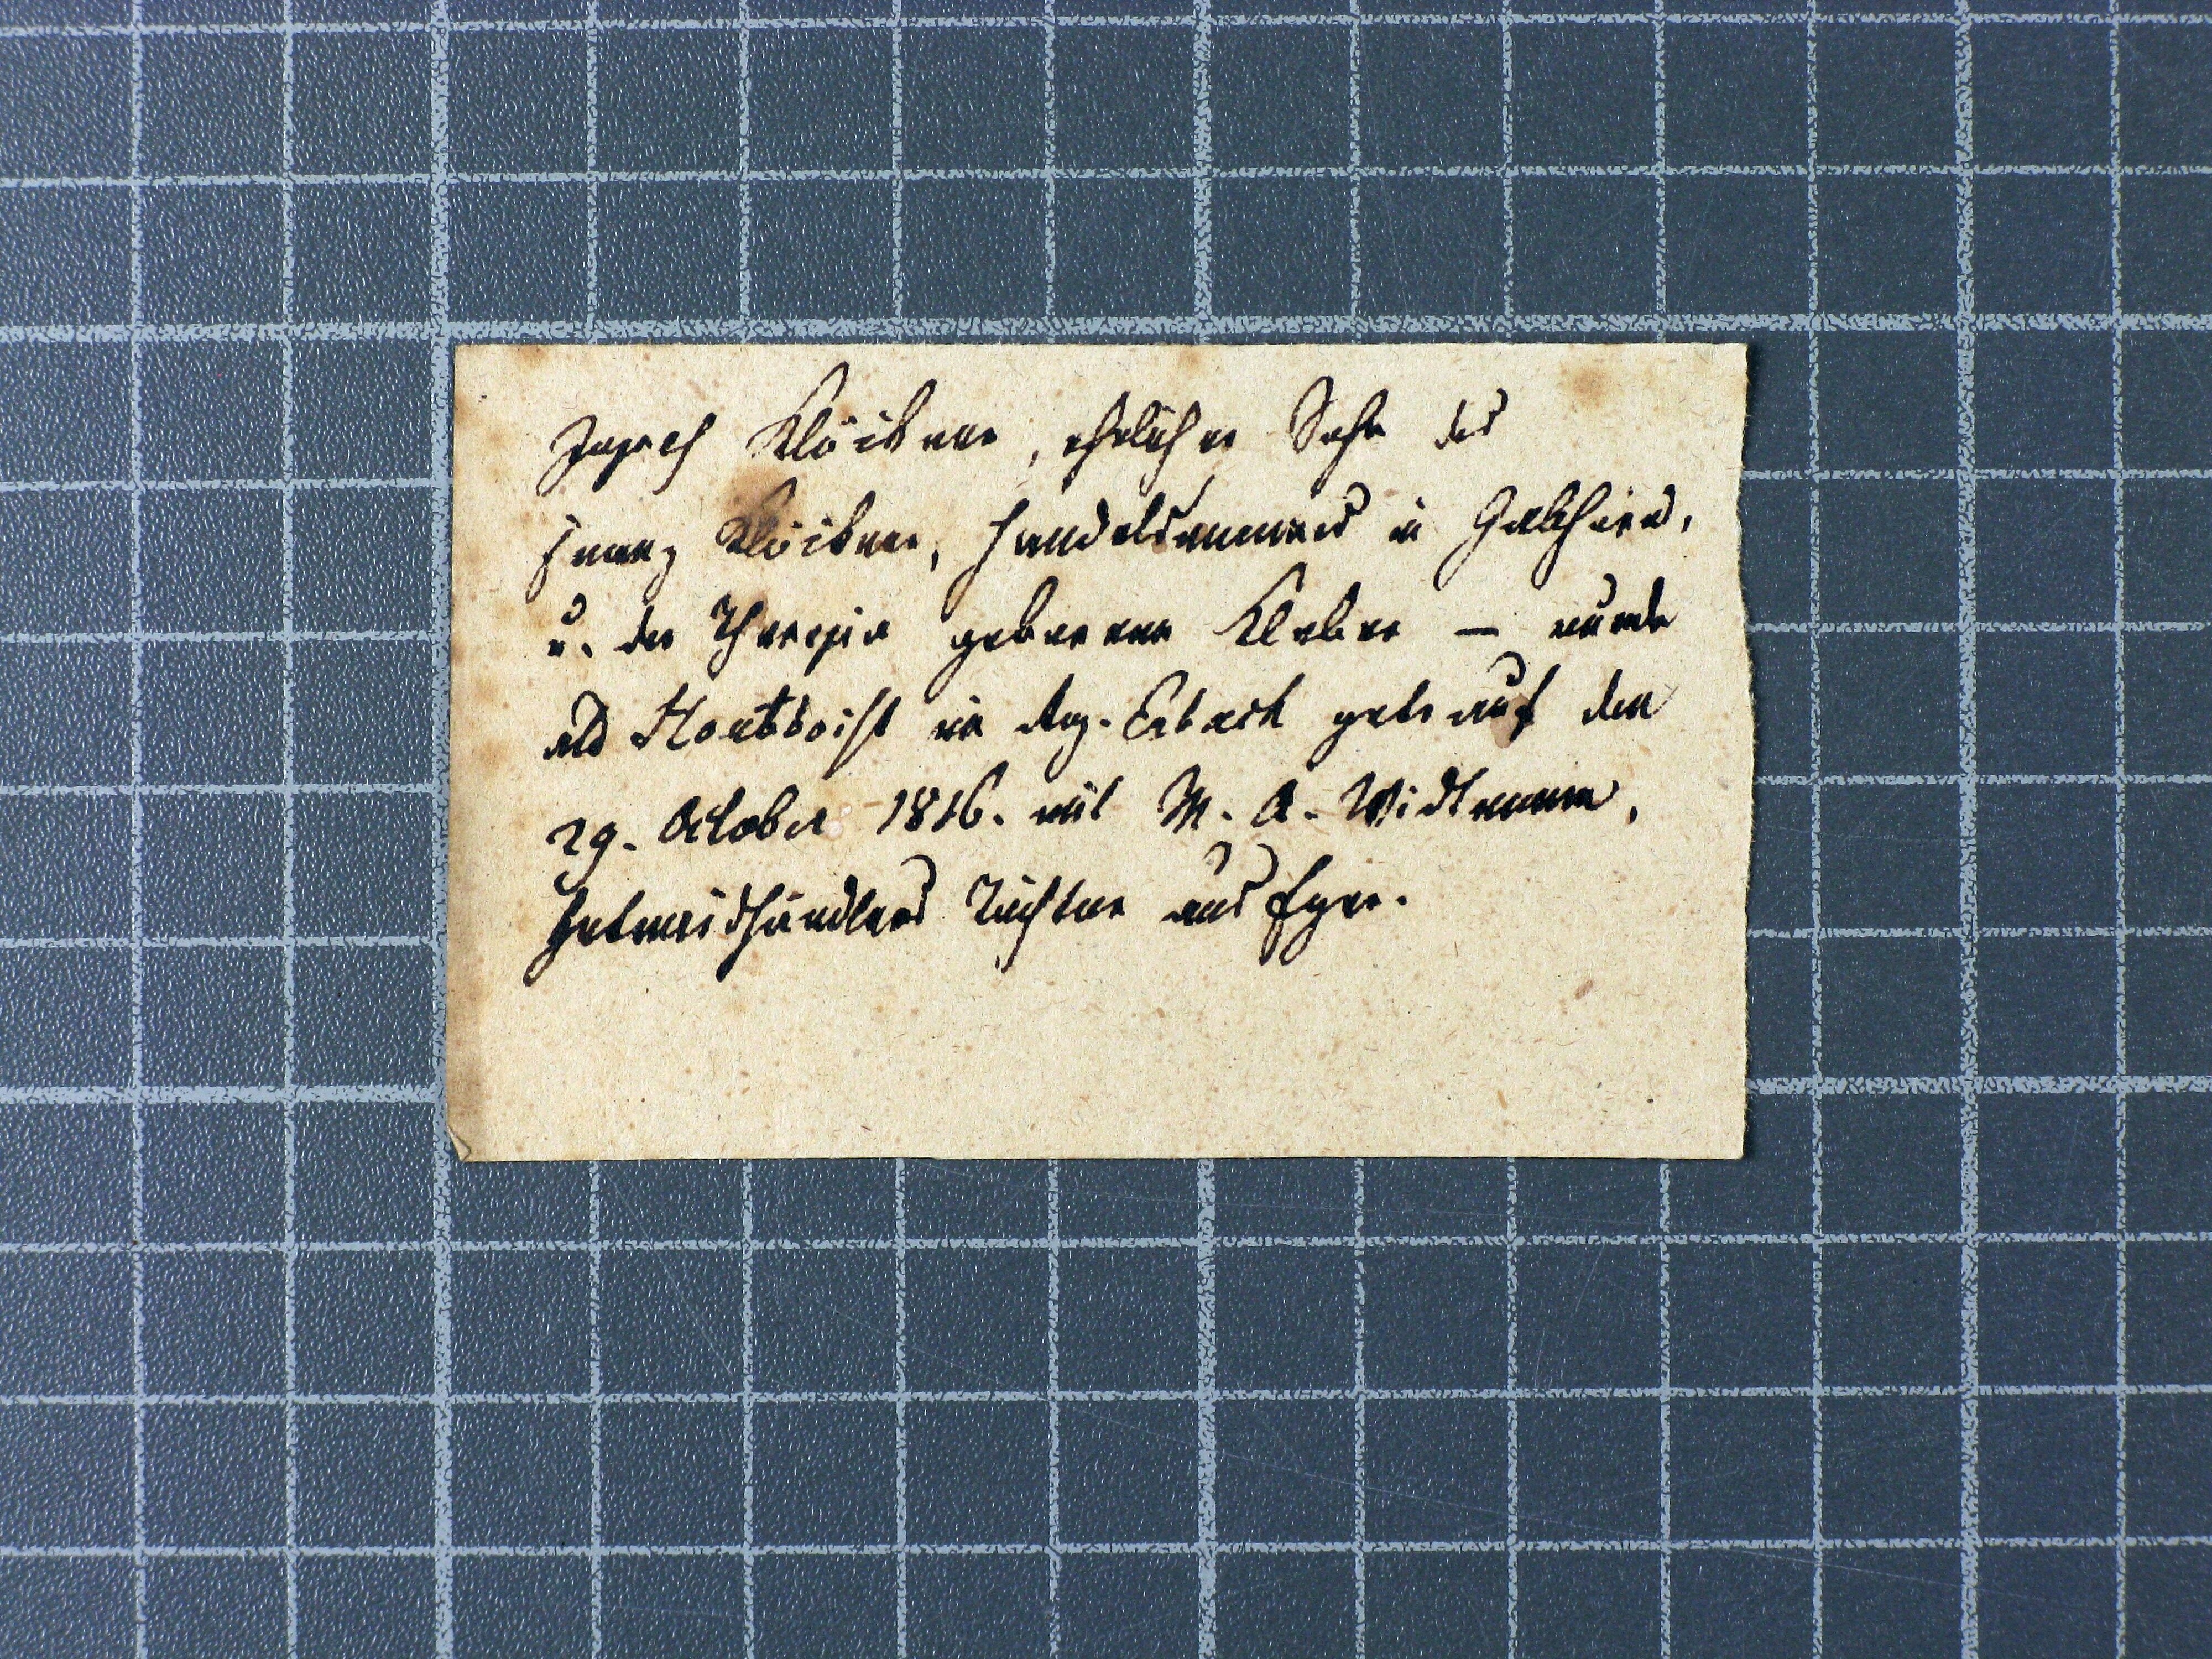 Joseph Klöibner, ehelicher Sohn des
Franz Klöibner, Handelsmanns in
u. der Theresia geborenen Kleber — wurde
als Hautboist im Reg. Erbach getrauf den
29. October 1816. mit M. A. Widtmann,
Getreidhändlers Tochter aus Eger.